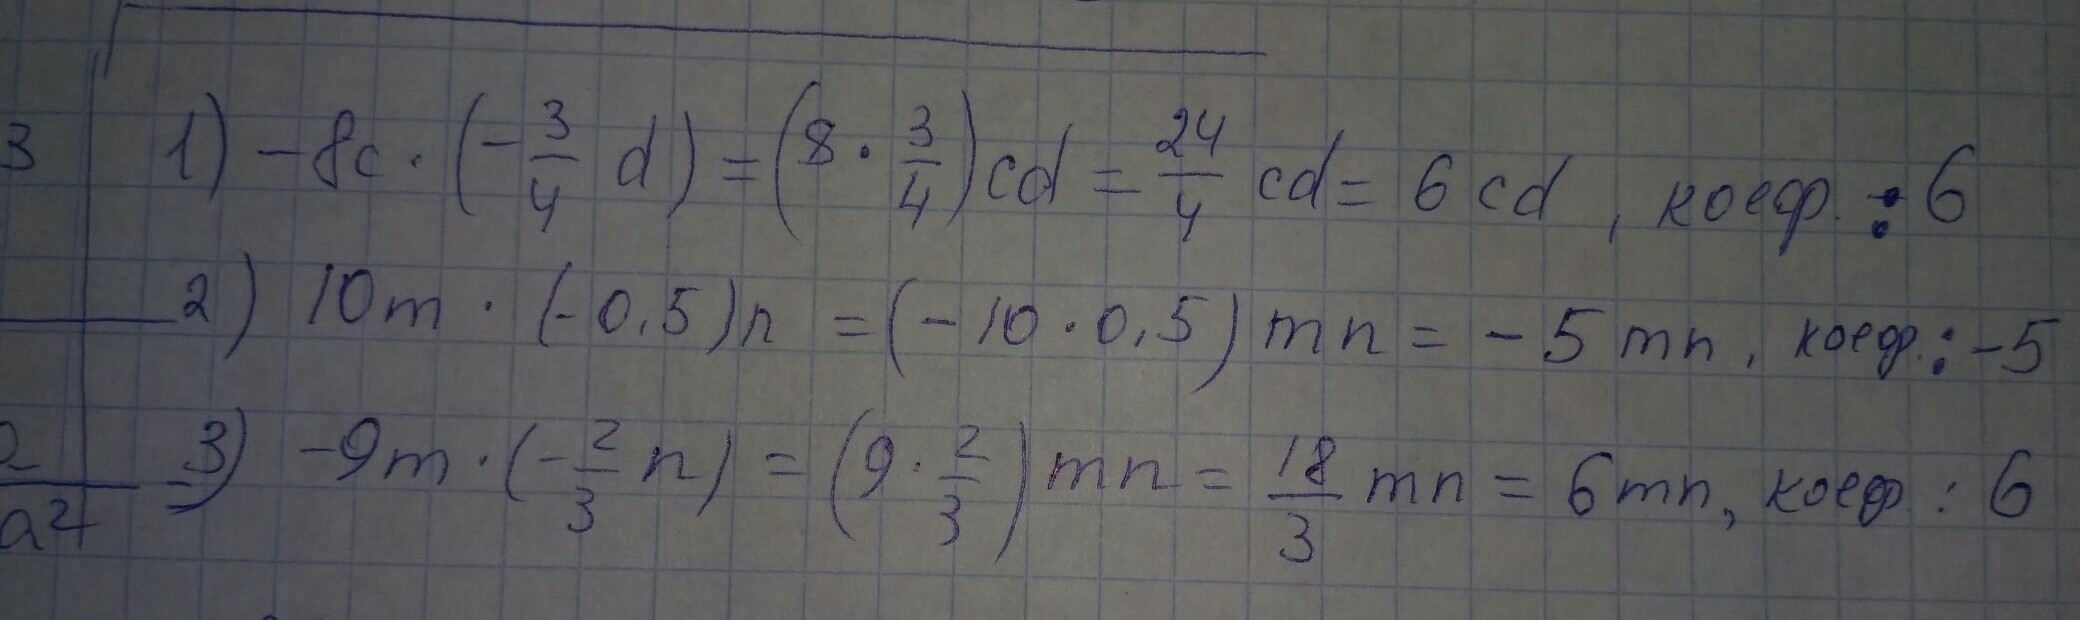 3 1) -8c · (-3/4 d) = (8 · 3/4) cd = 24/4 cd = 6 cd, коеф. : 6
2) 10m · (-0,5)n = (-10 · 0,5) mn = -5 mn, коеф. : -5
3) -9m · (-2/3 n) = (9 · 2/3) mn = 18/3 mn = 6mn, коеф. : 6
a²